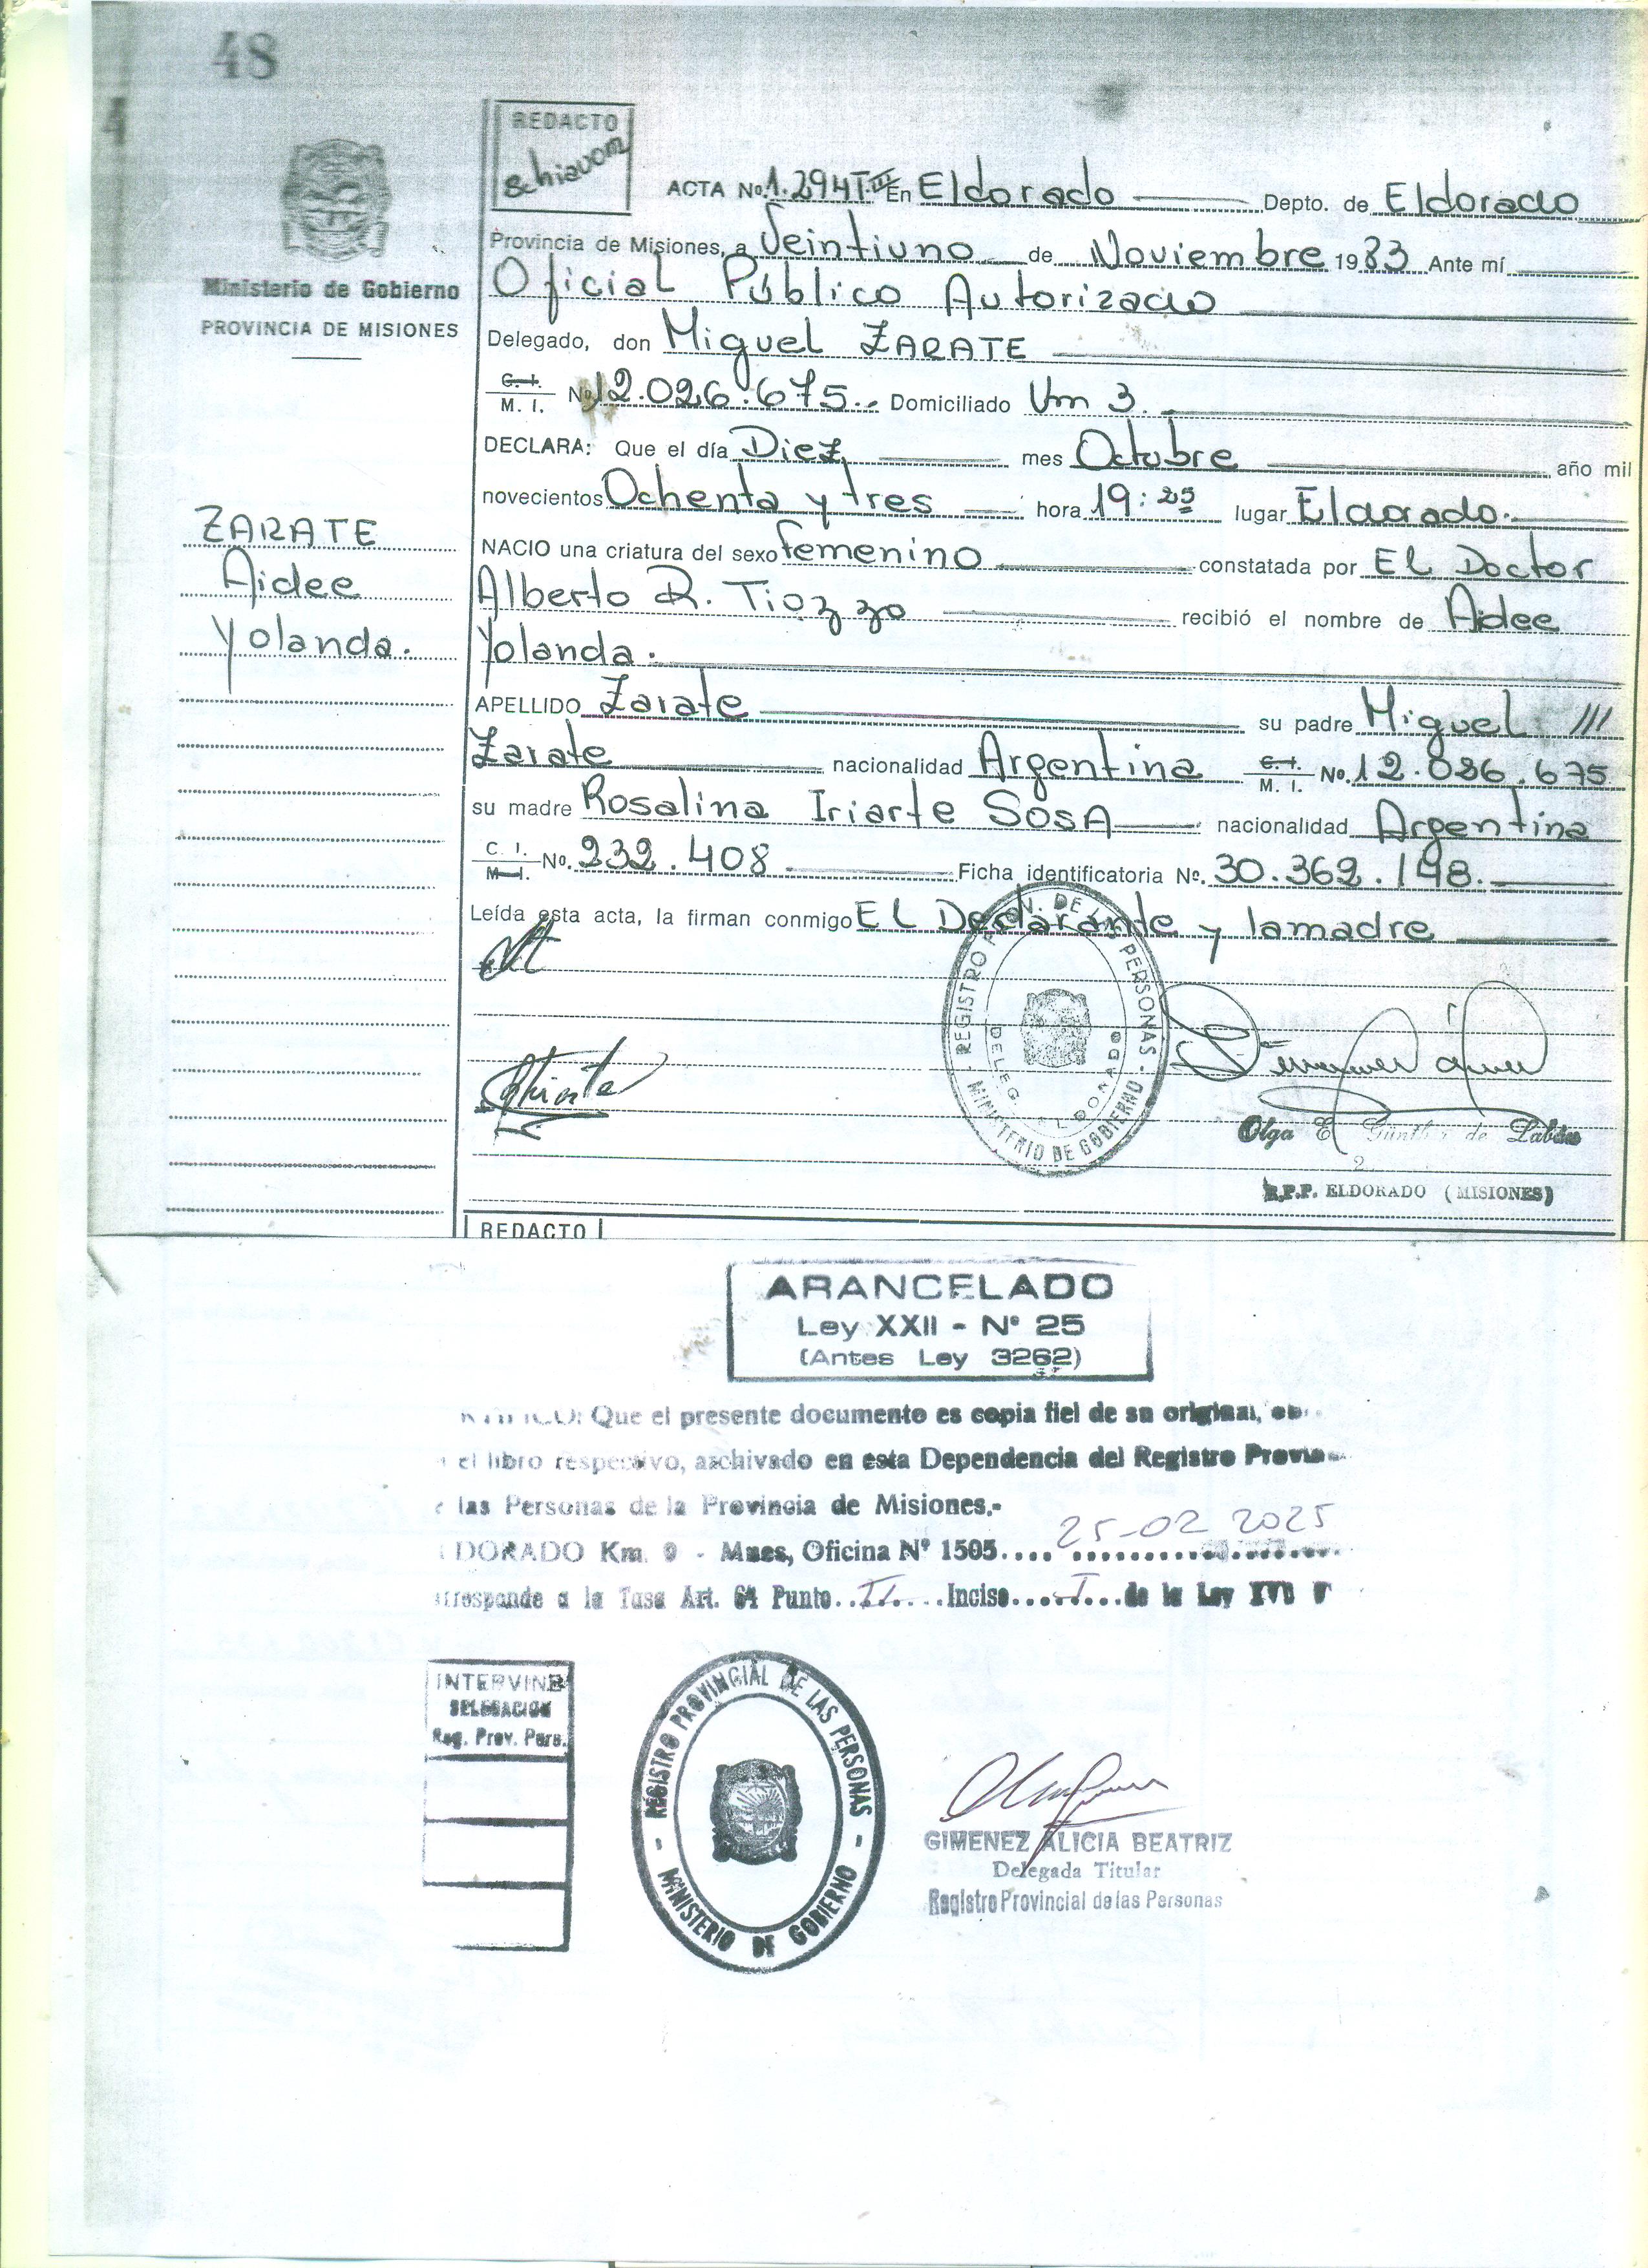 48
4
REDACTO
Schiavoni
Ministerio de Gobierno
PROVINCIA DE MISIONES
ZARATE
Aidee
Yolanda.
ACTA No. 1.294 T. III En Eldorado Depto. de Eldorado
Provincia de Misiones, a Veintiuno de Noviembre 1983 Ante mí
Oficial Público Autorizado
Delegado, don Miguel ZARATE
C. I. / M. I. No. 12.026.675 Domiciliado Km 3.
DECLARA: Que el día Diez mes Octubre año mil
novecientos Ochenta y tres hora 19:25 lugar Eldorado.
NACIO una criatura del sexo femenino constatada por El Doctor
Alberto R. Tiozzo recibió el nombre de Aidee
Yolanda.
APELLIDO Zarate su padre Miguel ///
Zarate nacionalidad Argentina C. I. / M. I. No. 12.026.675
su madre Rosalina Iriarte SosA nacionalidad Argentina
C. I. / M. I. No. 232.408 Ficha identificatoria No. 30.362.148.
Leída esta acta, la firman conmigo El Declarante y la madre
REGISTRO PROVIN. DE LAS PERSONAS
DELEG. ELDORADO
MINISTERIO DE GOBIERNO
Olga E. Günther de
R.P.P. ELDORADO (MISIONES)
REDACTO
ARANCELADO
Ley XXII - Nº 25
(Antes Ley 3262)
Que el presente documento es copia fiel de su original,
el libro respectivo, archivado en esta Dependencia del Registro
las Personas de la Provincia de Misiones.-
DORADO Km. 9 - Mnes, Oficina Nº 1505.... 25-02 2025
rresponde a la Tasa Art. 64 Punto..II....Inciso....I...de la Ley XVII
INTERVINE
DELEGACION
Reg. Prov. Pers.
REGISTRO PROVINCIAL DE LAS PERSONAS
MINISTERIO DE GOBIERNO
GIMENEZ ALICIA BEATRIZ
Delegada Titular
Registro Provincial de las Personas